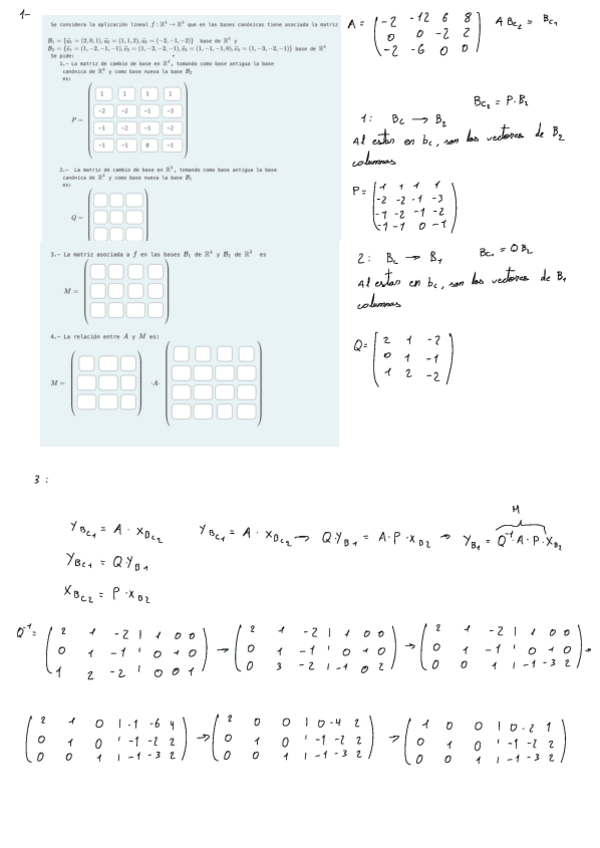 1-
Se considera la aplicación lineal f: ℝ⁴ → ℝ³ que en las bases canónicas tiene asociada la matriz
B₁ = {u⃗₁ = (2, 0, 1), u⃗₂ = (1, 1, 2), u⃗₃ = (-2, -1, -2)} base de ℝ³ y
B₂ = {v⃗₁ = (1, -2, -1, -1), v⃗₂ = (1, -2, -2, -1), v⃗₃ = (1, -1, -1, 0), v⃗₄ = (1, -3, -2, -1)} base de ℝ⁴
Se pide:
1.- La matriz de cambio de base en ℝ⁴, tomando como base antigua la base
canónica de ℝ⁴ y como base nueva la base B₂
es:
P =
1 1 1 1
-2 -2 -1 -3
-1 -2 -1 -2
-1 -1 0 -1
2.- La matriz de cambio de base en ℝ³, tomando como base antigua la base
canónica de ℝ³ y como base nueva la base B₁
es:
Q =
3.- La matriz asociada a f en las bases B₁ de ℝ³ y B₂ de ℝ⁴ es
M =
4.- La relación entre A y M es:
M = ·A·
A = ( -2 -12 6 8
0 0 -2 2
-2 -6 0 0 )
A B_C₂ = B_C₁
B_C₂ = P·B₂
1: B_C → B₂
Al estar en b_c, son los vectores de B₂
columnas
P = ( 1 1 1 1
-2 -2 -1 -3
-1 -2 -1 -2
-1 -1 0 -1 )
2: B_C → B₁ B_C₁ = Q B₁
Al estar en b_c, son los vectores de B₁
columnas
Q = ( 2 1 -2
0 1 -1
1 2 -2 )
3:
M
Y_BC₁ = A · X_BC₂ Y_BC₁ = A · X_BC₂ → Q·Y_B₁ = A·P·X_B₂ → Y_B₁ = Q⁻¹·A·P·X_B₂
Y_BC₁ = Q·Y_B₁
X_BC₂ = P·X_B₂
Q⁻¹ = ( 2 1 -2 | 1 0 0 ) → ( 2 1 -2 | 1 0 0 ) → ( 2 1 -2 | 1 0 0 ) →
0 1 -1 | 0 1 0 0 1 -1 | 0 1 0 0 1 -1 | 0 1 0
1 2 -2 | 0 0 1 0 3 -2 | -1 0 2 0 0 1 | -1 -3 2
( 2 1 0 | -1 -6 4 ) → ( 2 0 0 | 0 -4 2 ) → ( 1 0 0 | 0 -2 1 )
0 1 0 | -1 -2 2 0 1 0 | -1 -2 2 0 1 0 | -1 -2 2
0 0 1 | -1 -3 2 0 0 1 | -1 -3 2 0 0 1 | -1 -3 2